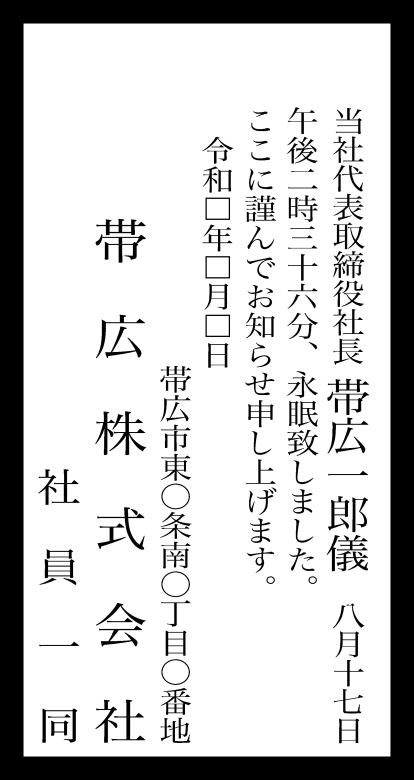 当社代表取締役社長 帯広一郎儀 八月十七日
午後二時三十六分、永眠致しました。
ここに謹んでお知らせ申し上げます。
令和□年□月□日
帯広市東○条南○丁目○番地
帯広株式会社
社員一同